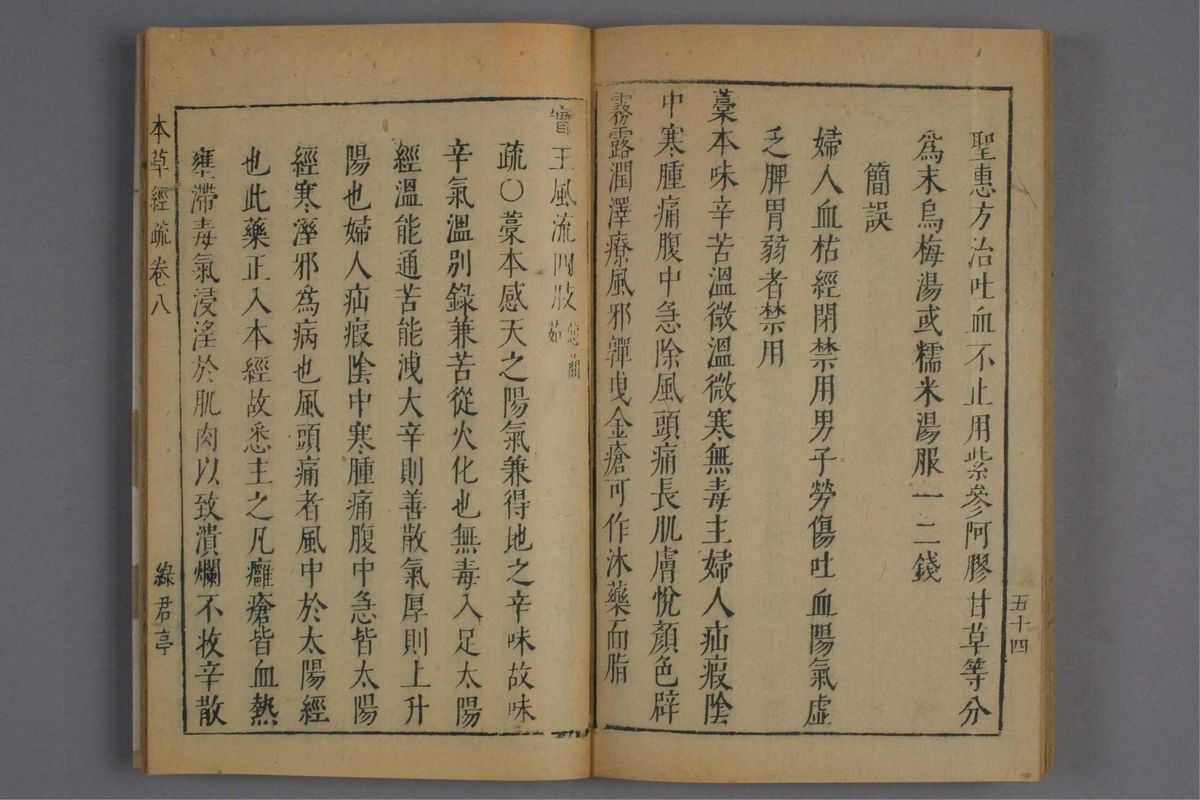 聖惠方治吐血不止用紫參阿膠甘草等分
爲末烏梅湯或糯米湯服一二錢
簡誤
婦人血枯經閉禁用男子勞傷吐血陽氣虛
乏脾胃弱者禁用
藁本味辛苦溫微溫微寒無毒主婦人疝瘕陰
中寒腫痛腹中急除風頭痛長肌膚悅顏色辟
霧露潤澤療風邪嚲曳金瘡可作沐藥面脂
五十四
實主風流四肢惡䕡茹
疏○藁本感天之陽氣兼得地之辛味故味
辛氣溫別錄兼苦從火化也無毒入足太陽
經溫能通苦能洩大辛則善散氣厚則上升
陽也婦人疝瘕陰中寒腫痛腹中急皆太陽
經寒溼邪爲病也風頭痛者風中於太陽經
也此藥正入本經故悉主之凡癰瘡皆血熱
壅滯毒氣浸淫於肌肉以致潰爛不收辛散
本草經疏卷八
綠君亭